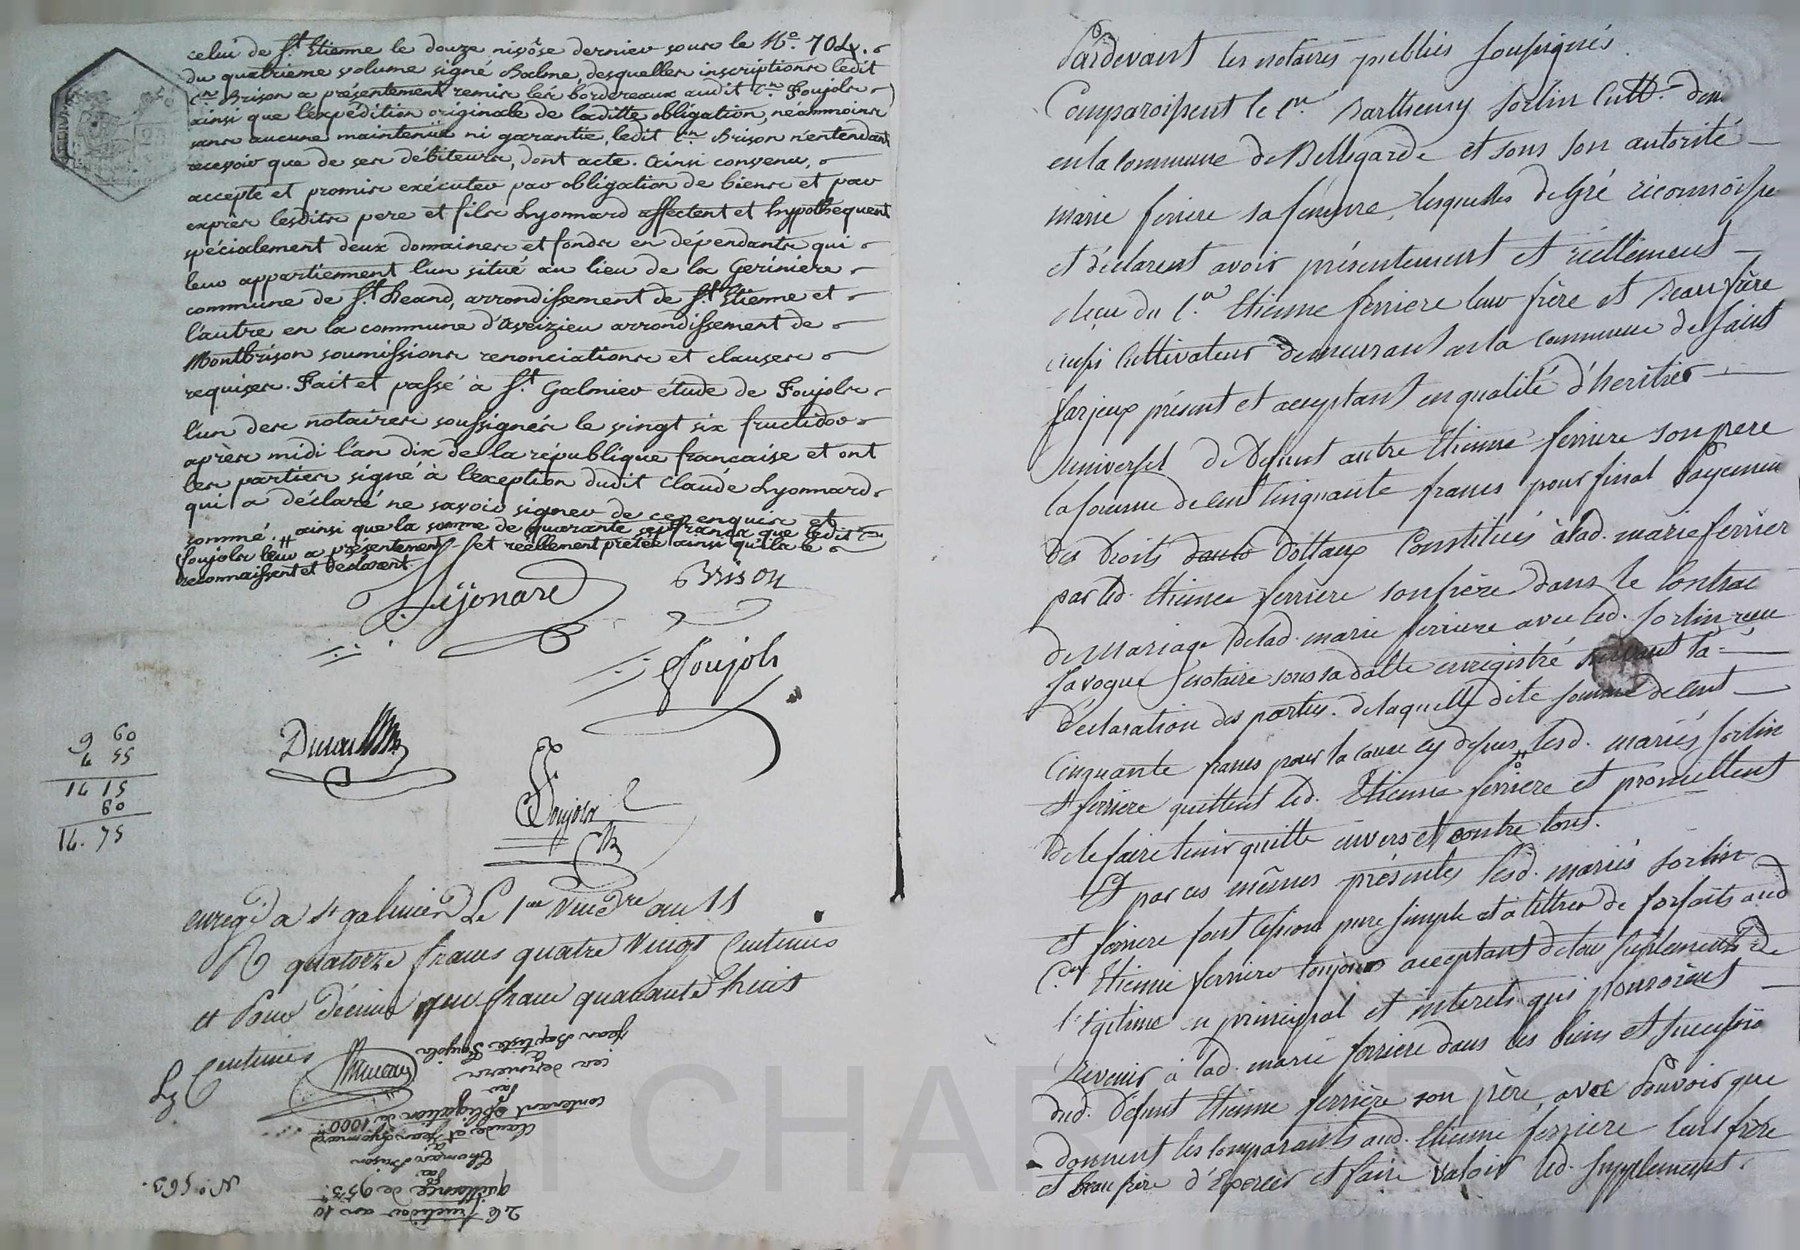 celui de St. Etienne le douze nivôse dernier sous le No. 704.
du quatrieme volume signé Balme, desquelles inscriptions ledit
Cen. Brison a présentement remis les bordereaux audit Cen. Foujols
ainsi que l'expédition originale de laditte obligation, néanmoins
sans aucune maintenüe ni garantie, ledit Cen. Brison n'entendant
recevoir que de ses débiteurs, dont acte. Ainsi convenu,
accepté et promis exécuter par obligation de biens et par
exprès lesdits pere et fils Lyonnard affectent et hypothequent
spécialement deux domaines et fonds en dépendants qui
leur appartiennent l'un situé au lieu de la Geriniere
commune de St. Heand, arrondissement de St. Etienne et
l'autre en la commune d'Aveizieu arrondissement de
Montbrison soumissions renonciations et clauses
requises. Fait et passé à St. Galmier étude de Foujols
l'un des notaires soussignés le vingt six fructidor
après midi l'an dix de la république française et ont
les parties signé à l'exeption dudit Claude Lyonnard
qui a déclaré ne savoir signer de ce enquis et
sommé. # ainsi que la somme de quarante sept francs que ledit Cen
Foujols leur a présentement et réellement prêtée ainsi qu'ils le
reconnaissent et declarent.
Lyonard
Brison
Foujols
Foujols
9 60
4 55
14 15
60
14. 75
enregé a St galmier Le 1er Vendre an 11
R quatorze francs quatre Vingt Centimes
et Pour décime un franc quarante huit
Centimes
No. 563.
26 fructidor an 10
quittance de 953f
par
Thomas Brison
à
Claude et Jean Lyonnard
contenant obligation de 1000f
par
ces derniers
à
Jean Baptiste Foujols
Pardevant les notaires publics soussignés.
Comparoissent le Cen. Barthemy Sorlin Cultr. dem
en la commune de Bellegarde et sous son autorité
marie feriere sa femme, lesquelles de gré reconnoisse
et déclarent avoir présentement et réellement
Reçu du Cen. Etienne ferriere leur frère et beaufrère
aussi Cultivateur demeurant en la commune de Saint
farjeux présent et acceptant en qualité d'heritier
universel de Defunt autre Etienne ferriere son pere
la somme de cent Cinquante francs pour final Payemen
des droits dottaux Constitués à lad. marie ferrier
par led. Etienne ferriere son frère dans le Contrat
de Mariage de lad. marie ferriere avec led. Sorlin reçu
favogue notaire sous sa datte enregistré suivant la
déclaration des parties. de laquelle dite somme de cent
Cinquante francs pour la cause cy dessus lesd. mariés Sorlin
et ferriere quittent led. Etienne ferriere et promettent
de le faire tenir quitte envers et contre tous.
Et par ces mêmes présentes lesd. mariés Sorlin
et ferriere font cession pure simple et à tittres de forfaits aud
Cen Etienne ferriere toujours acceptant de tous suplements de
l'égitime en principal et interets qui pourroient
revenir à lad. marie ferriere dans les biens et succession
dud. défunt Etienne ferrière son père avec Pouvoir que
donnent les comparants aud. Etienne ferriere leur frère
et beau frère d'Exercer et faire valoir led. supplement.